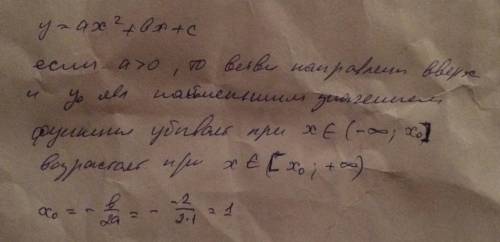 y = ax² + bx + c
если a>0, то ветви направлены вверх
и y₀ явл наименьшим значением
функция убывает при x ∈ (-∞; x₀]
возрастает при x ∈ [x₀; +∞)
x₀ = - b/2a = - -2/2·1 = 1